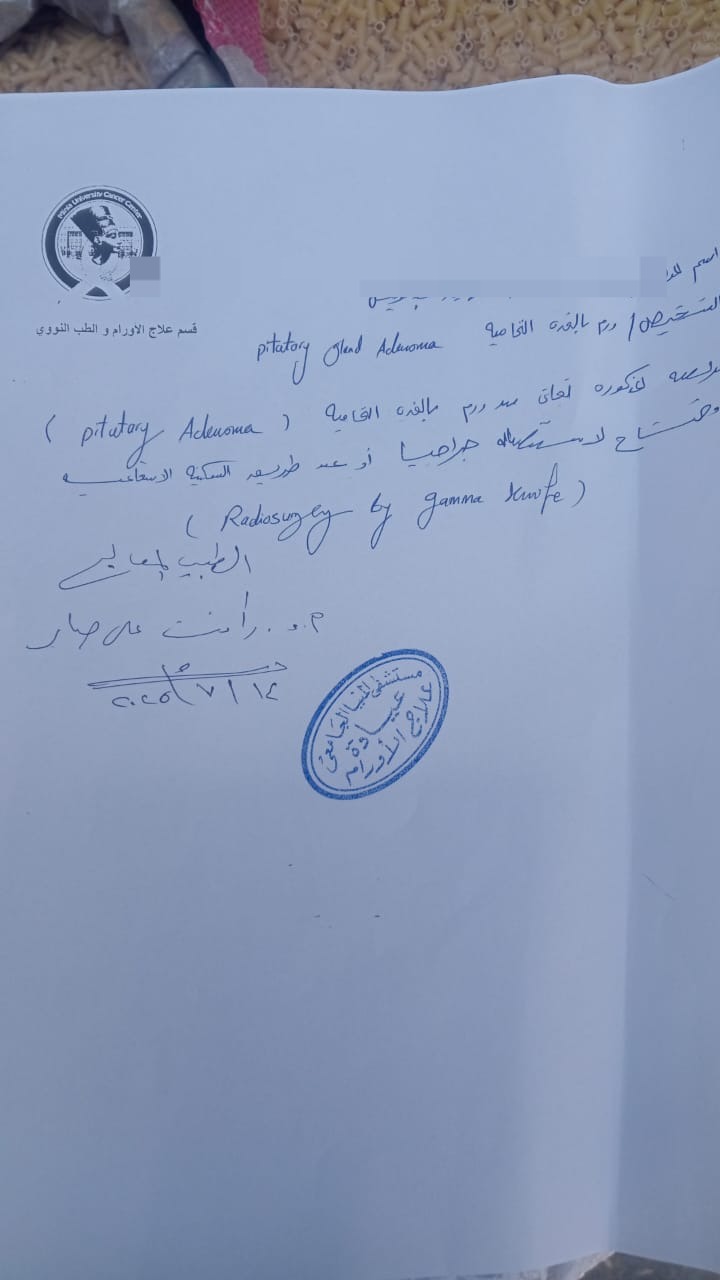 Minia University Cancer Center
قسم علاج الاورام و الطب النووي
اسم
التشخيص / ورم بالغدة النخامية pitutory gland Adenoma
المريضه المذكوره تعانى من ورم بالغده النخاميه ( pitutary Adenoma )
وتحتاج لاستئصاله جراحيا أو عن طريق السكينة الاشعاعيه
( Radiosurgery by gamma knife )
الطبيب المعالج
م.د. رأفت على صابر
٢٠٢٥/٧/١٤
مستشفى المنيا الجامعى
عيادة
علاج الأورام